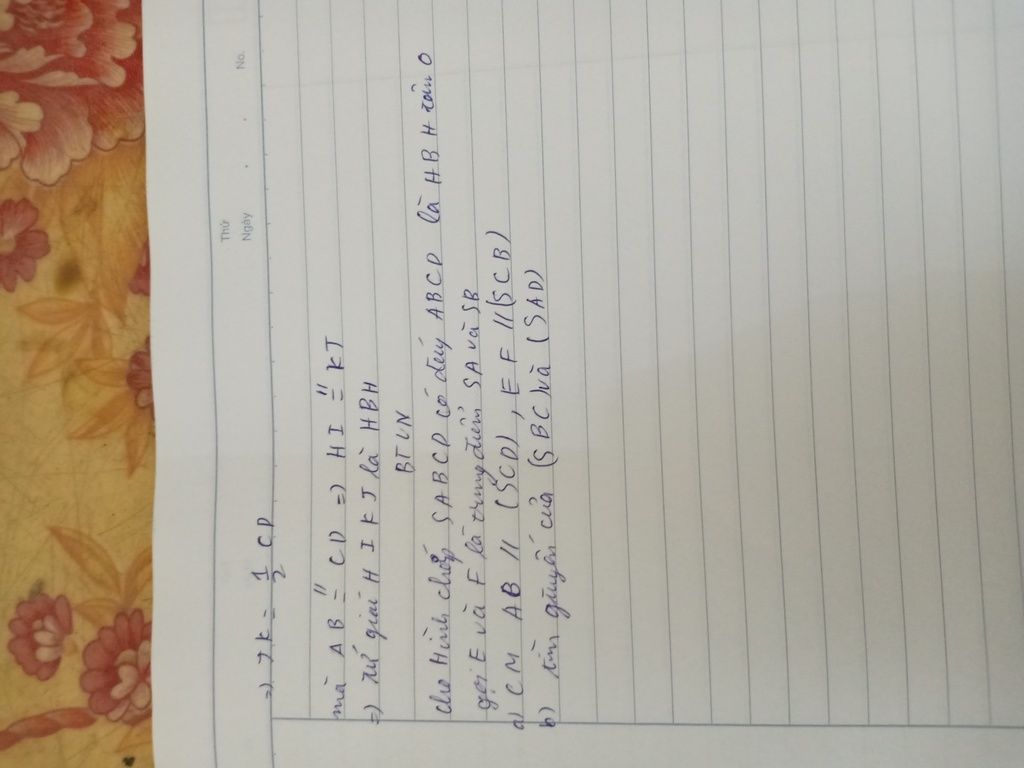 Thứ
Ngày . . No.
=) JK = 1/2 CD
mà AB //= CD =) HI //= KJ
=) tứ giác H I K J là HBH
BTVN
cho Hình chóp SABCD có đáy ABCD là HBH tâm O
gọi E và F là trung điểm SA và SB
a) CM AB // (SCD), EF // (SCB)
b) tìm giao tuyến của (SBC) và (SAD)